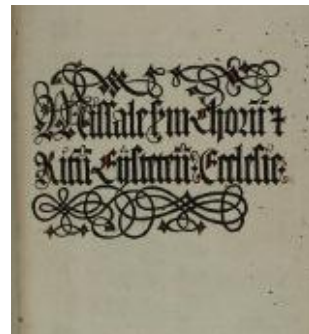 Missale scḋm Chorū ⁊
Ritū Eystetteñ. Ecclesie.